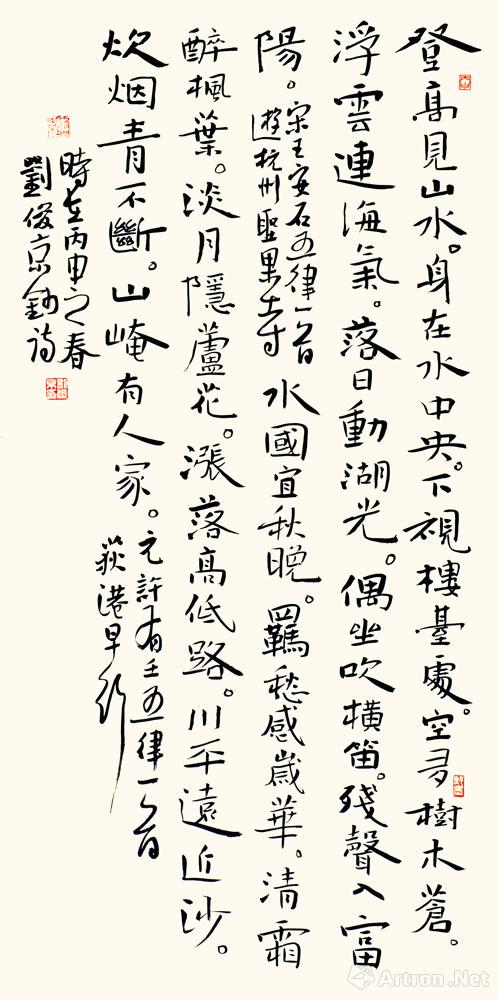 登高見山水。身在水中央。下視樓臺處。空多樹木蒼。
浮雲連海氣。落日動湖光。偶坐吹橫笛。殘聲入富
陽。宋王安石五律一首
遊杭州聖果寺
水國宜秋晚。羈愁感歲華。清霜
醉楓葉。淡月隱蘆花。漲落高低路。川平遠近沙。
炊烟青不斷。山崦有人家。元許有壬五律一首
荻港早行
時在丙申之春
劉俊京鈔詩
Artron.Net